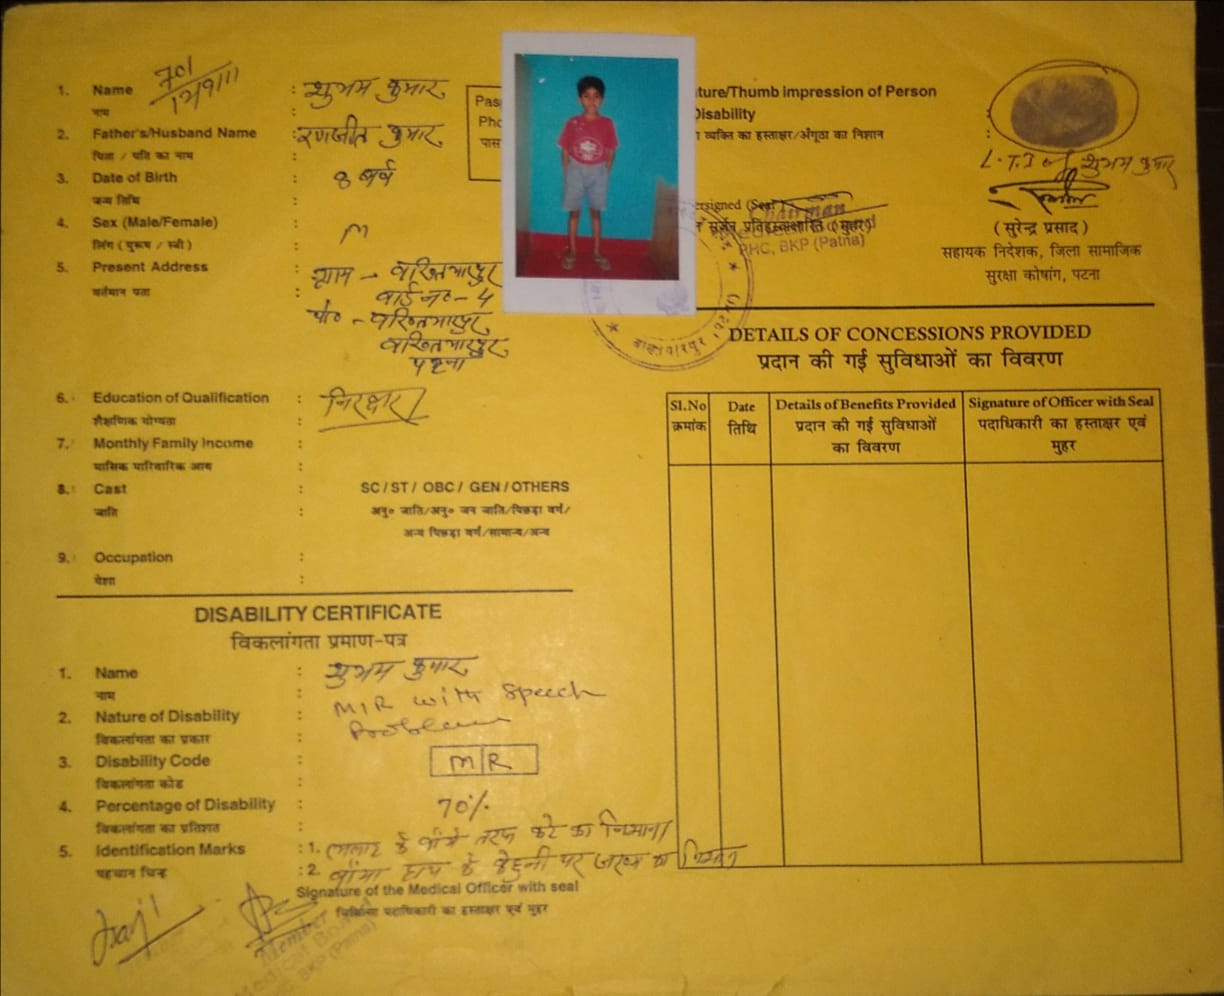 701
12/9/11
1. Name : शुभम कुमार
नाम :
2. Father's/Husband Name : रणजीत कुमार
पिता / पति का नाम :
3. Date of Birth : 8 वर्ष
जन्म तिथि :
4. Sex (Male/Female) : M
लिंग (पुरूष / स्त्री) :
5. Present Address : ग्राम - बख्तियारपुर
वर्तमान पता : वार्ड न० - 4
पो० - बख्तियारपुर
बख्तियारपुर
पटना
6. Education of Qualification : निरक्षर
शैक्षणिक योग्यता :
7. Monthly Family Income :
मासिक पारिवारिक आय :
8. Cast : SC / ST / OBC / GEN / OTHERS
जाति : अनु० जाति/अनु० जन जाति/पिछड़ा वर्ग/
अन्य पिछड़ा वर्ग/सामान्य/अन्य
9. Occupation :
पेशा :
DISABILITY CERTIFICATE
विकलांगता प्रमाण-पत्र
1. Name : शुभम कुमार
नाम :
2. Nature of Disability : M/R with Speech
विकलांगता का प्रकार : Problem
3. Disability Code : M R
विकलांगता कोड :
4. Percentage of Disability : 70%
विकलांगता का प्रतिशत :
5. Identification Marks : 1. के बाँये तरफ कटे का निशान।
पहचान चिन्ह : 2. बाँया हाथ के केहुनी पर जख्म का निशान
Signature of the Medical Officer with seal
चिकित्सा पदाधिकारी का हस्ताक्षर एवं मुहर
Member
Medical Board
PHC, BKP (Patna)
Pas
Pho
पास
ture/Thumb impression of Person
Disability
व्यक्ति का हस्ताक्षर/अँगूठा का निशान
L.T.I of शुभम कुमार
ersigned (Seal)
Chairman
प्रतिहस्ताक्षरित (मुहर)
PHC, BKP (Patna)
(सुरेन्द्र प्रसाद)
सहायक निदेशक, जिला सामाजिक
सुरक्षा कोषांग, पटना
DETAILS OF CONCESSIONS PROVIDED
प्रदान की गई सुविधाओं का विवरण
Sl.No Date Details of Benefits Provided Signature of Officer with Seal
क्रमांक तिथि प्रदान की गई सुविधाओं पदाधिकारी का हस्ताक्षर एवं
का विवरण मुहर